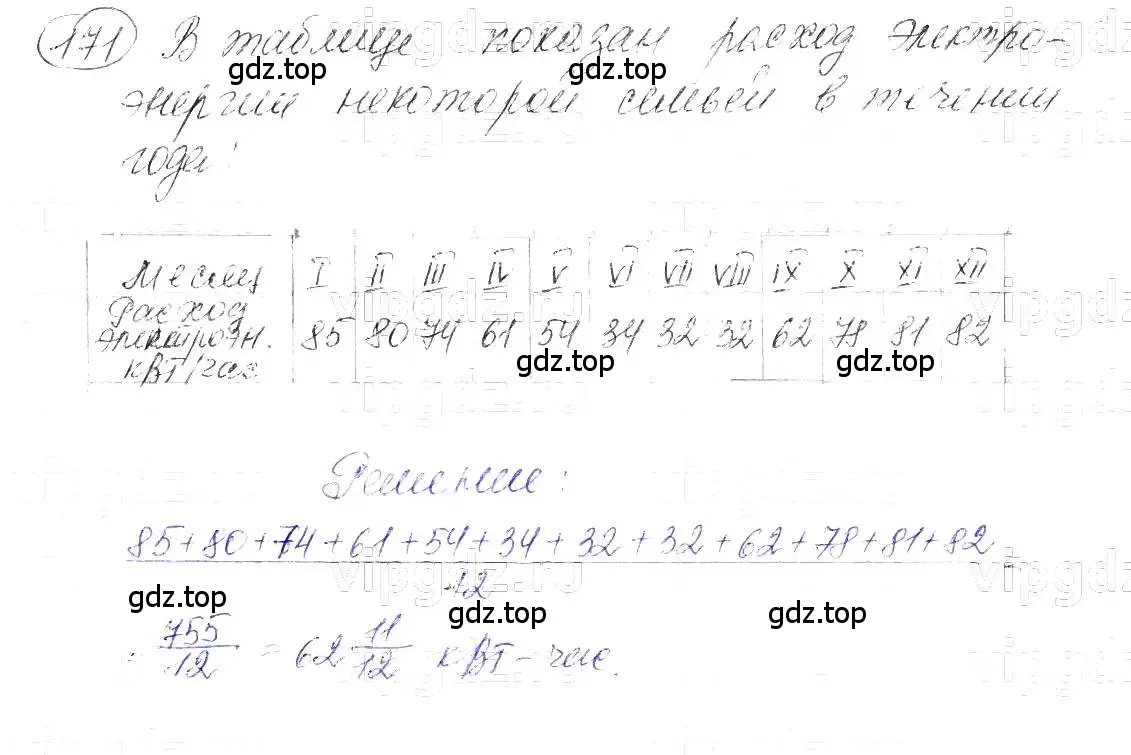 171 В таблице показан расход электро-
энергии некоторой семьёй в течении
года:
Месяц I II III IV V VI VII VIII IX X XI XII
Расход
электроэн. 85 80 74 61 54 34 32 32 62 78 81 82
кВТ/час
Решение:
85+80+74+61+54+34+32+32+62+78+81+82 =
12
= 755/12 = 62 11/12 кВТ-час.
gdz.top gdz.top gdz.top
gdz.top gdz.top
gdz.top gdz.top gdz.top
vipgdz.ru